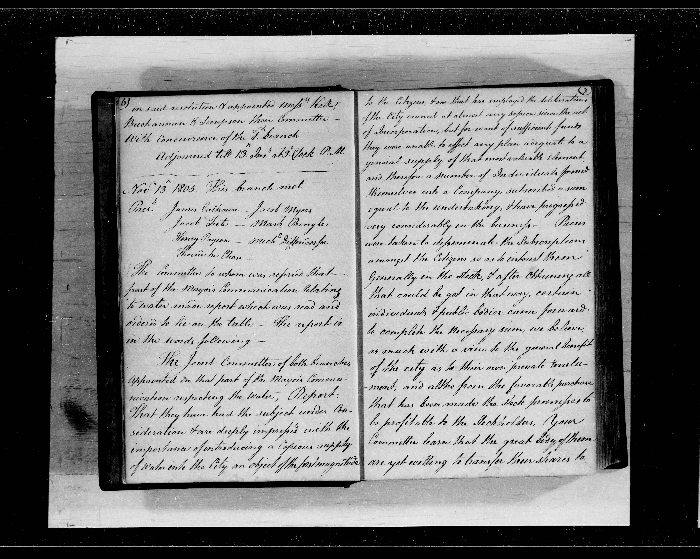 6)
on said resolution & appointed Messrs Hide,
Buchannan & Simpson their Committee –
With Concurrence of the 2d branch
Adjourned till 13th Inst at 3 o'Clock P.M.
Novr 13th 1803 This branch met
Pres.t James Calhoun – Jacob Myers
– Mark Pringle
Henry Payson – Michl Diffenderfer
The Committee to whom was refered that
part of the Mayors Communication relating
to water made report which was read and
to lie on the table – The report is
in the words following –
The Joint Committee of both branches
appointed on that part of the Mayors Commu-
nication respecting the Water, Report.
That they have had the subject under Con-
sideration & are deeply impressed with the
importance of introducing a Copious supply
of Water into the City an object of the first magnitude
(7
to the Citizens & one that has employed the deliberations
of the City council at almost any session since the act
of Incorporation, but for want of sufficient funds
they were unable to effect any plan adequate to a
general supply of that most valuable element,
and therefore a number of Individuals formed
themselves into a Company, subscribed a sum
equal to the undertaking, & have progressed
very considerably in the business – Pains
was taken to disseminate the Subscription
amongst the Citizens so as to interest them
Generally in the Stock, & after obtaining all
that could be got in that way, certain
individuals & public bodies came forward
to complete the Necessary sum, we believe
as much with a view to the general benefit
of the city as to their own private emolu-
ment, and altho from the favorable purchase
that has been made the Stock promises to
be profitable to the Stockholders, Your
Committee learn that the great body of them
are yet willing to transfer their shares to